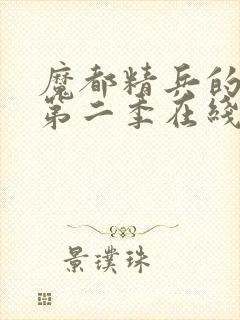 魔都精兵的
第二季在线
景璞珠